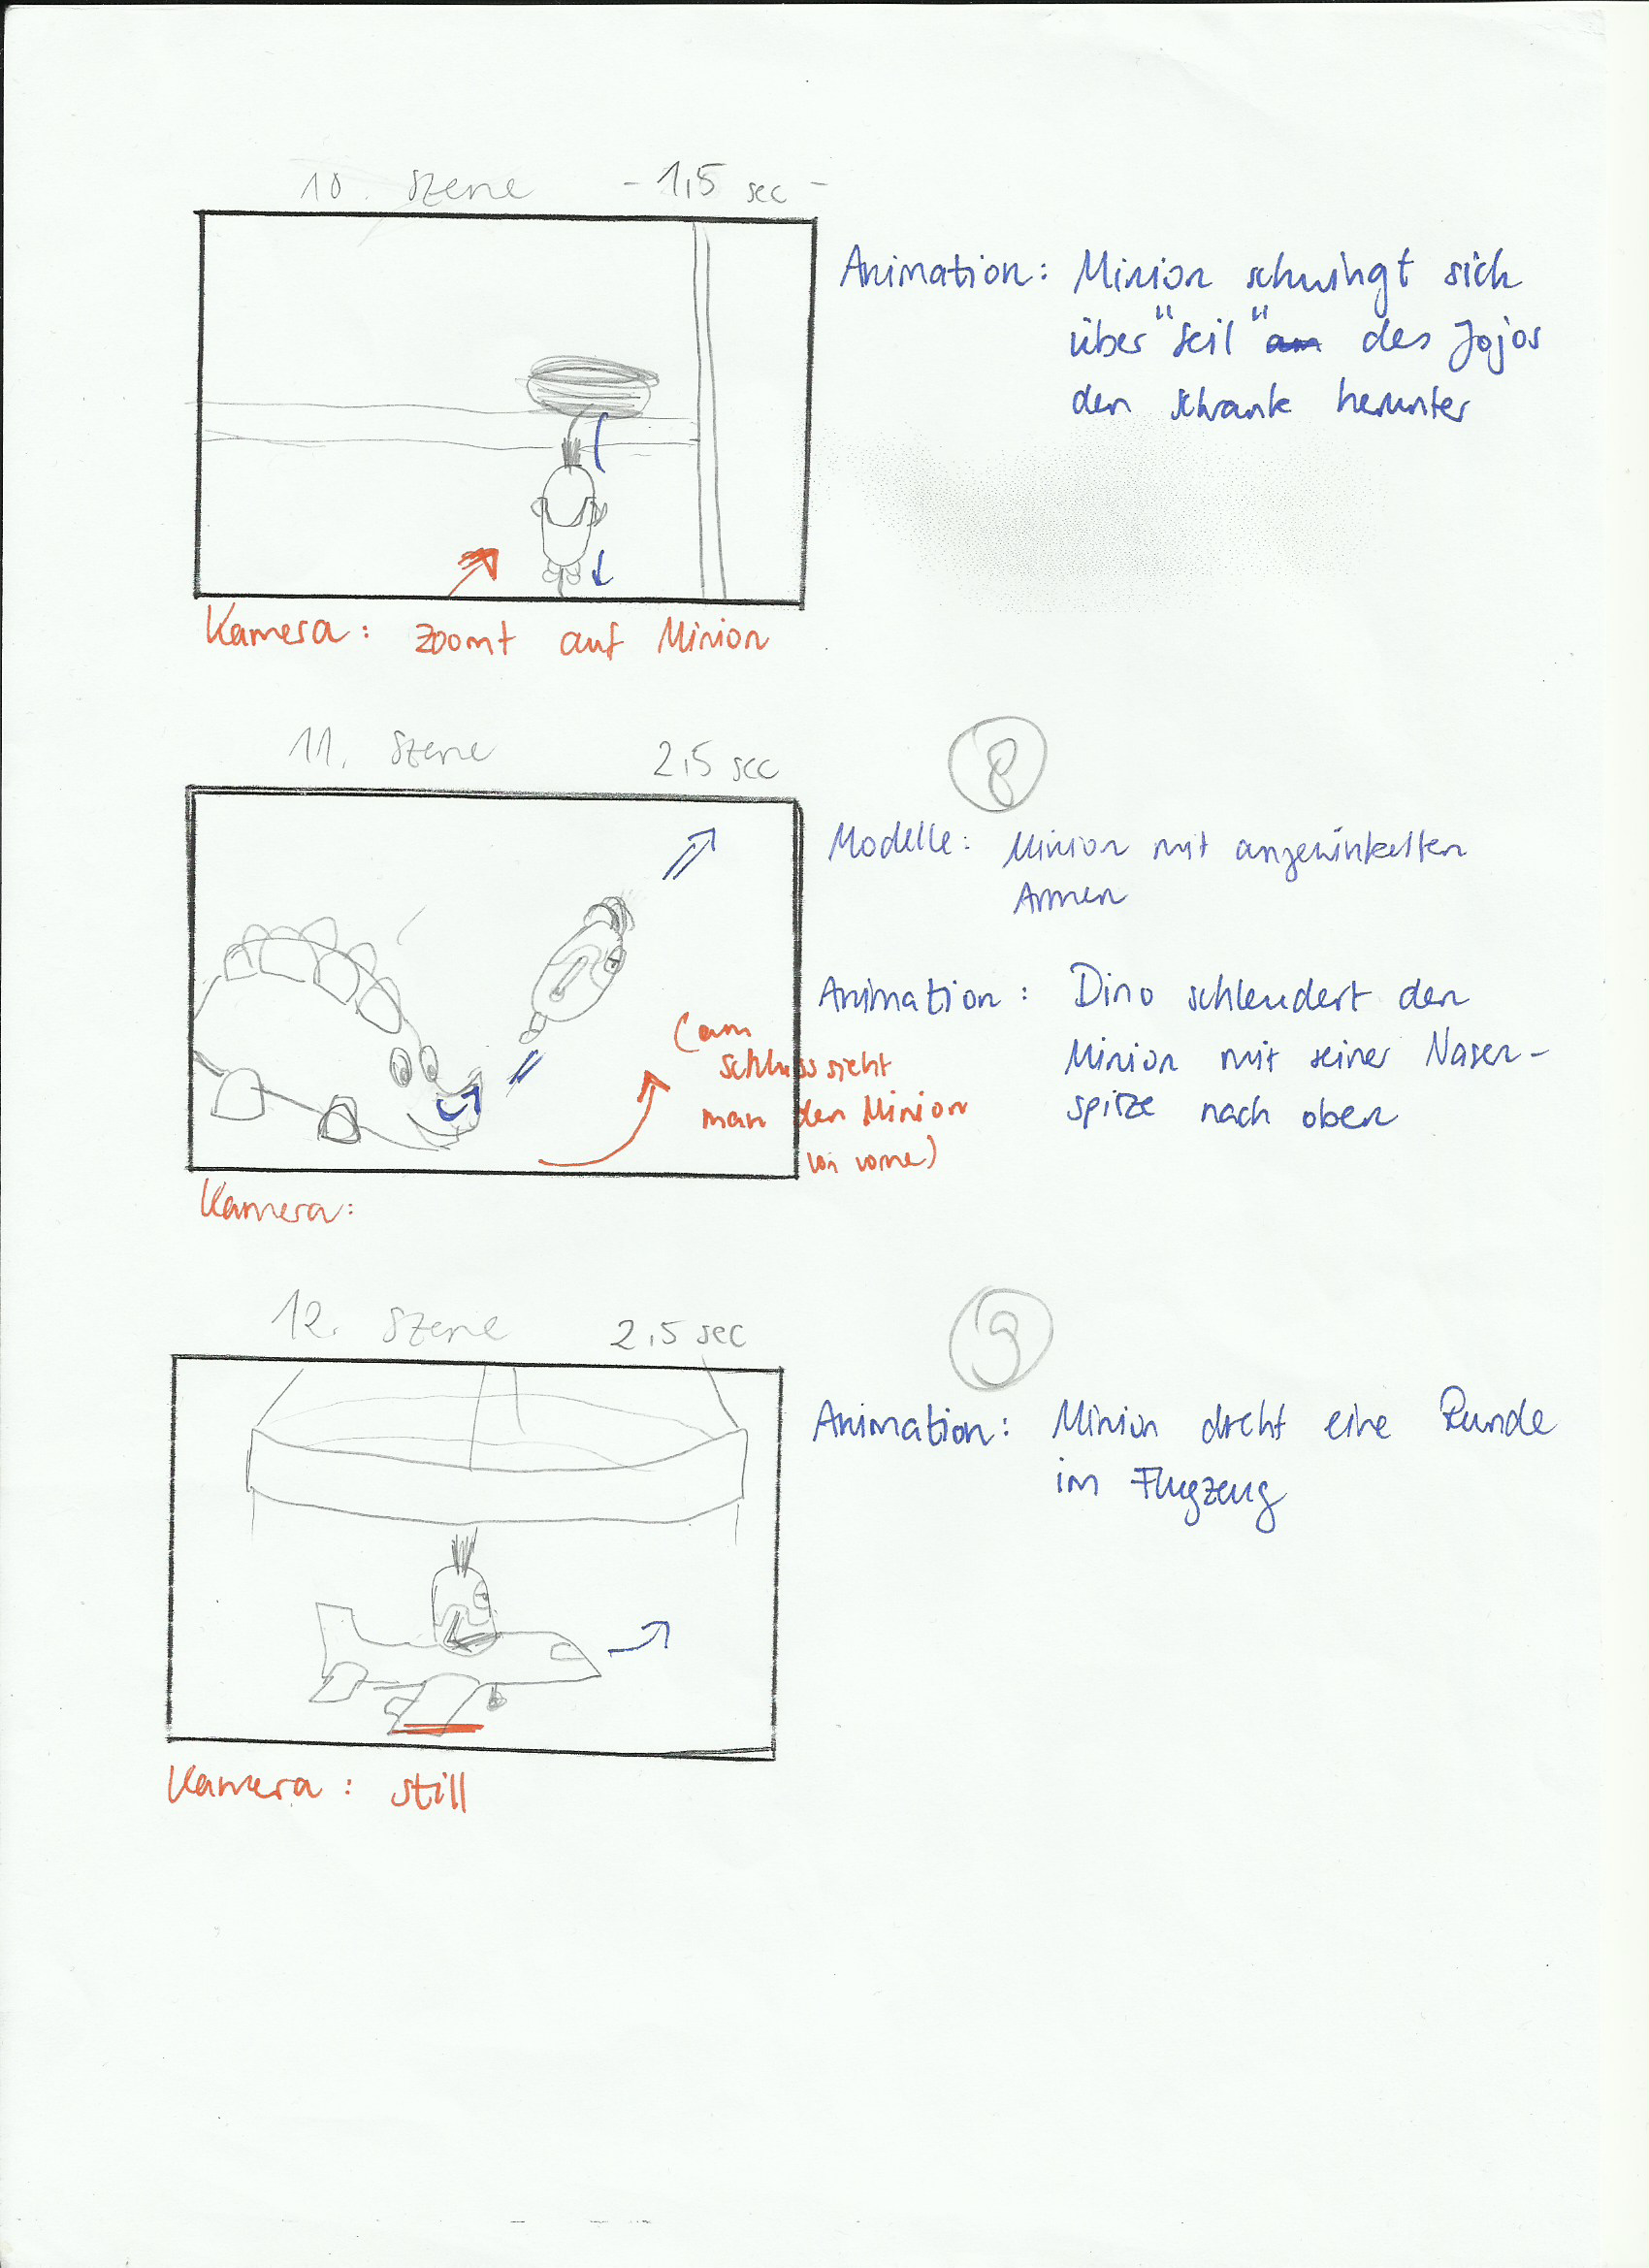 10. Szene - 1,5 sec -
Animation: Minion schwingt sich
über "Seil" des Jojos
den schrank herunter
Kamera: zoomt auf Minion
11. Szene 2,5 sec
8
Modelle: Minion mit angewinkelten
Armen
Animation: Dino schleudert den
Minion mit seiner Nasen-
spitze nach oben
(am
schluss sieht
man den Minion
von vorne)
Kamera:
12. Szene 2,5 sec
9
Animation: Minion dreht eine Runde
im Flugzeug
Kamera: still